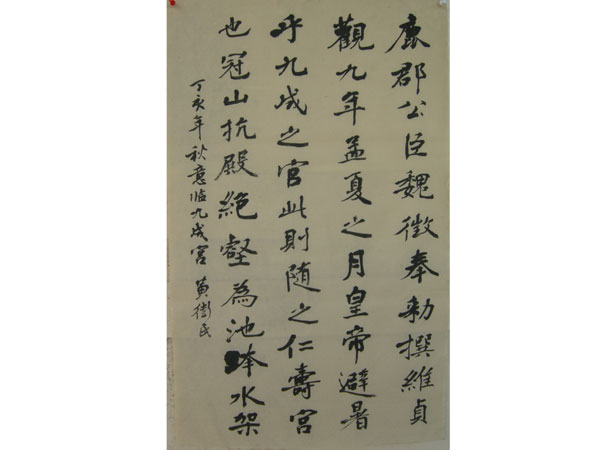 鹿郡公臣魏徵奉勅撰維貞
觀九年孟夏之月皇帝避暑
乎九成之宮此則随之仁壽宮
也冠山抗殿絶壑為池跨水架
丁亥年秋意臨九成宮 黄衛民